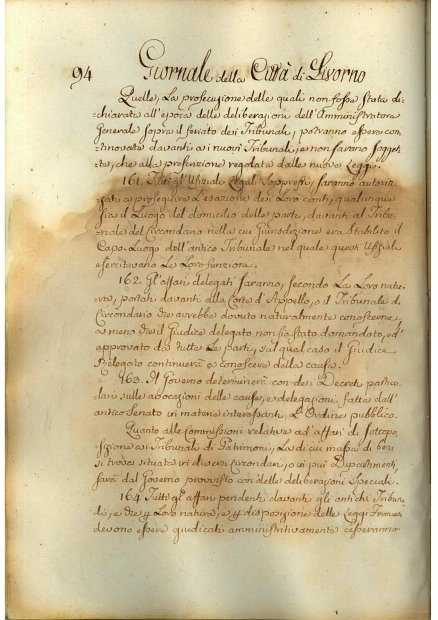 94 Giornale della Città di Livorno
Quelle, La prosecuzione delle quali non fosse stata di-
chiarata all'epoca delle deliberazioni dell'Amministratore
Generale sopra il feriato dei Tribunali, potranno essere con-
tinovate davanti ai nuovi Tribunali, e non saranno sogget-
te, che alla presunzione regolata dalle nuove Leggi.
161. Tutti gl'Ufiziali Legali soppressi, saranno autoriz-
zati a proseguire L'esazione dei Loro conti, qualunque
sia il Luogo del domicilio delle parti, davanti al Tribu-
nale del Circondario nella cui Giurisdizione era Stabilito il
Capo-Luogo dell'antico Tribunale nel quale questi Uffiziali
esercitavano Le Loro funzioni.
162. Gl'affari delegati saranno, secondo La Loro natu-
ra, portati davanti alla Corte d'Appello, o il Tribunale di
Circondario che avrebbe dovuto naturalmente conoscerne,
a meno che il Giudice delegato non sia stato domandato, ed
approvato da tutte Le parti, sul qual caso il Giudice
Delegato continuerà a conoscere della causa.
163. Il Governo determinerà con dei Decreti partico-
lari sulle avocazioni delle cause, e delegazioni fatte dall'
antico Senato in materie interessanti L'Ordine pubblico.
Quanto alle Commissioni relative ad'affari di sottopo-
sizione ai Tribunali di Patrimoni, La di cui massa di beni
si trova situata in diversi Circondari, o in più Dipartimenti,
sarà dal Governo provvisto con delle deliberazioni speciali.
164 Tutti gl'affari pendenti davanti gli antichi Tribuna-
li, e che p Loro natura, e p disposizione delle Leggi Francesi
devono essere giudicati amministrativamente cesseranno